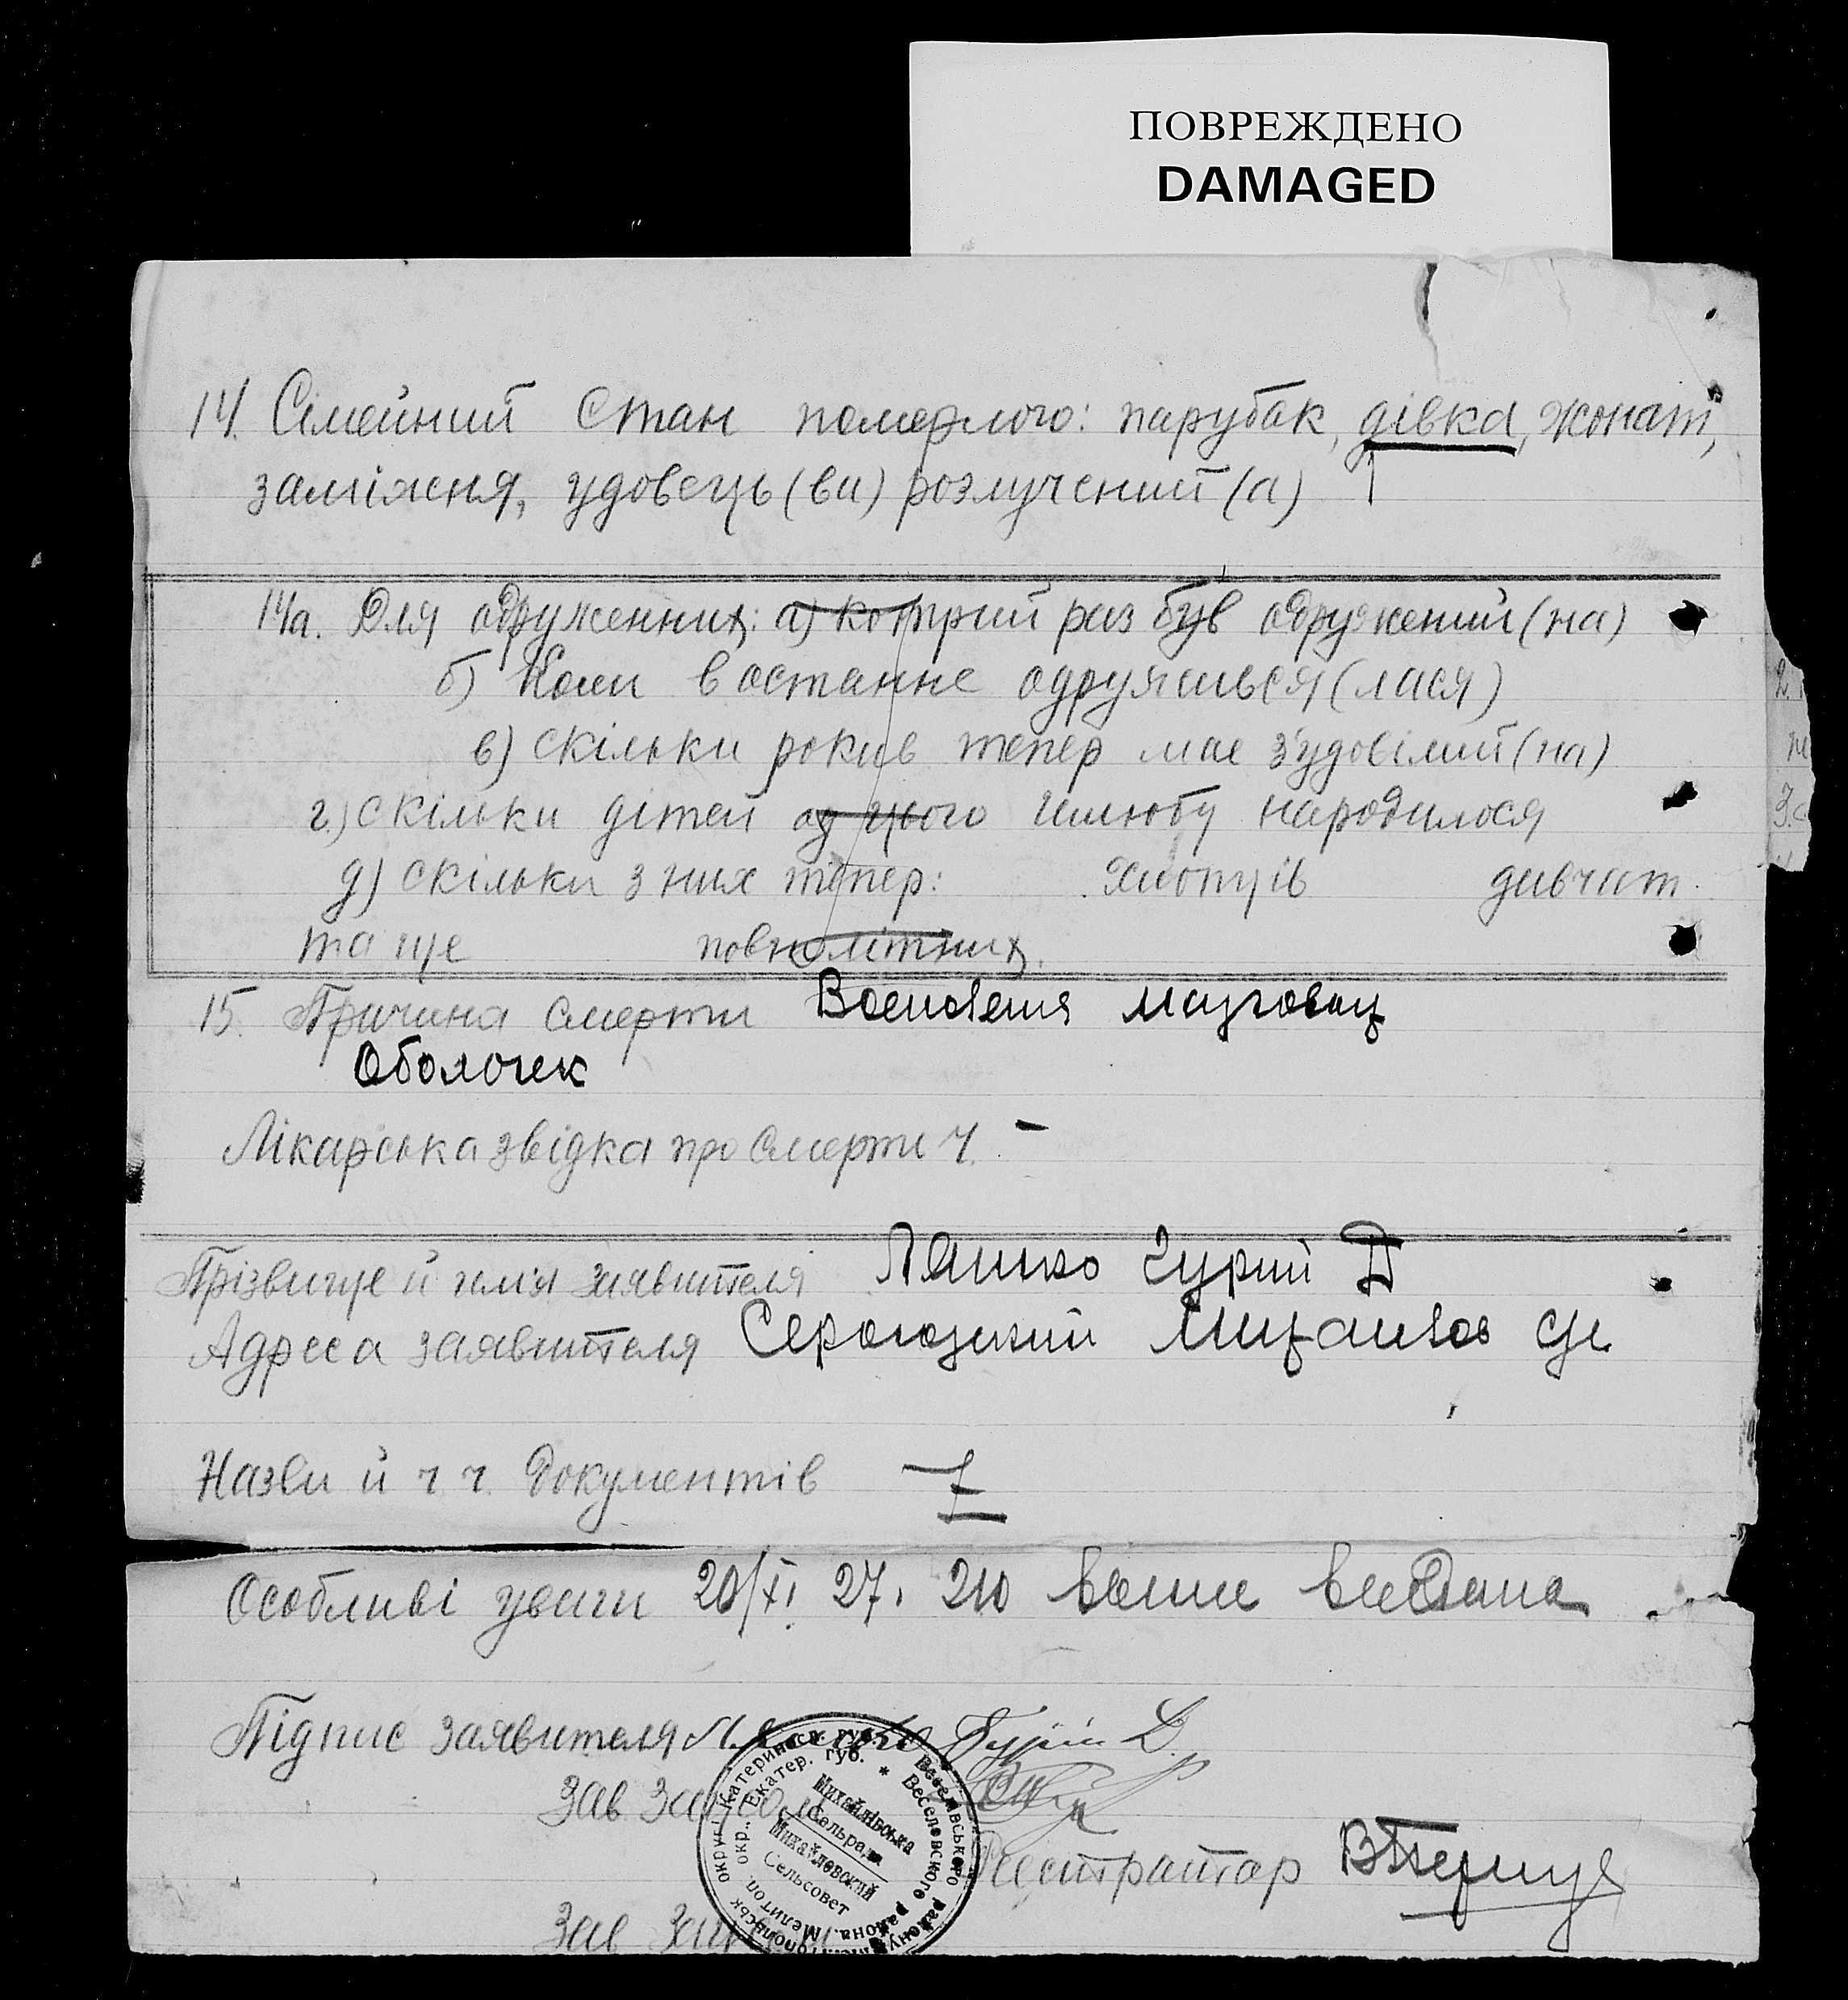 ПОВРЕЖДЕНО
DAMAGED
14. Сімейний Стан померлого: парубак, дівка, жонат,
заміжня, удовець (ви) розлучений (а)
14а. Для одружених: а) котрий раз був одружений (на)
б) Коли в останнє одружився (лася)
в) скільки років тепер має з'удовілий (на)
г) скільки дітей од цього шлюбу народилося
д) скільки з них тепер: хлопців дивчат
та ще повнолітних
15. Причина смерти Воспаления мозговых
Оболочек
Лікарська звідка про смерть ч. –
Прізвище й имя заявителя Ляшко Гурий Д
Адреса заявителя Серогозский Михайлов с/с
Назви й ч ч. Документів
Особливі уваги 20/XI 27.
Підпис заявителя Ляшко Гурій Д.
Зав Загсом
Реєстратор
Зав Загсом
Катериносл. губ. * Веселівського району
округи
Екатер. губ. * Веселовского района. Мелитоп. окр.
Михайлівська
Сельрада
Михайловский
Сельсовет